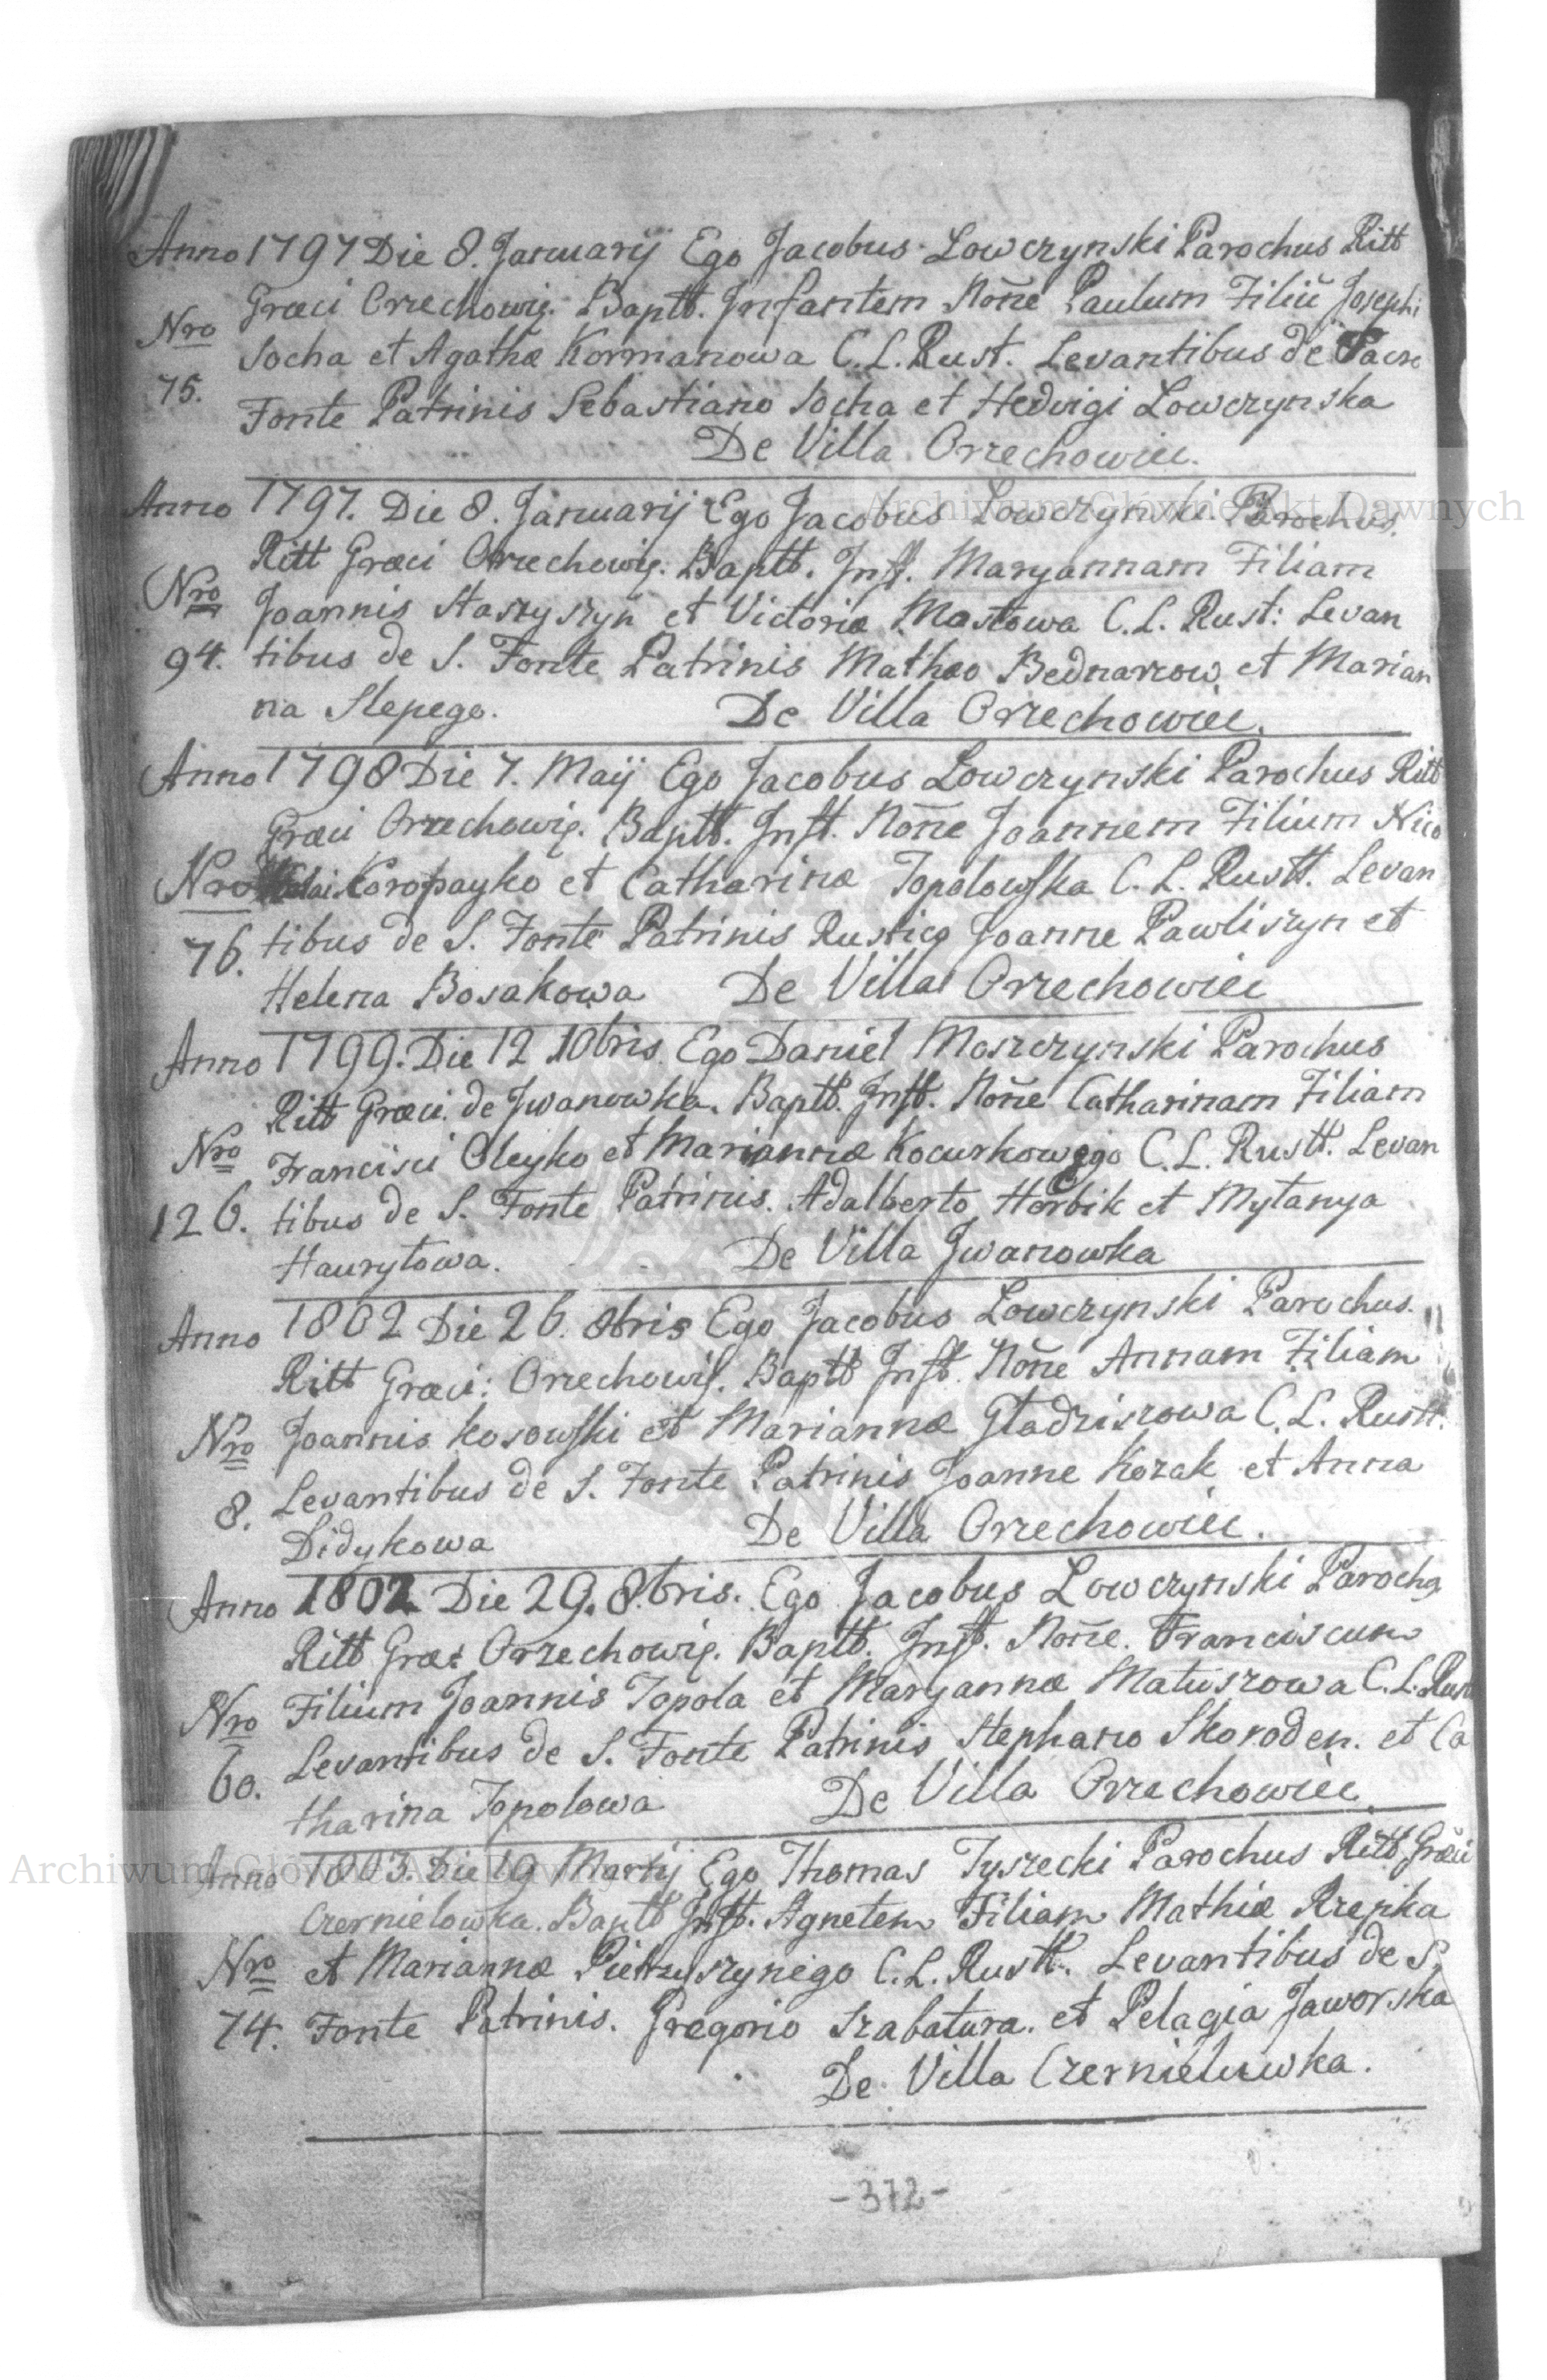 Anno 1797 Die 8. Januarij Ego Jacobus Lowczynski Parochus Ritt
Græci Orzechowię. Baptt. Infantem Nõne Paulum Filiũ Josephi
Nro Socha et Agathæ Kormanowa C. L. Rust. Levantibus de Sacro
75. Fonte Patrinis Sebastiano Socha et Hedvigi Lowczynska
De Villa Orzechowiec.
Anno 1797. Die 8. Januarij Ego Jacobus Lowczynski Parochus.
Ritt Græci Orzechowię. Baptt. Inft. Maryannam Filiam
Nro Joannis Staszyszyn et Victoriæ Mastowa C. L. Rust: Levan
94. tibus de S. Fonte Patrinis Matheo Bednarzow et Marian
na Slepego. De Villa Orzechowiec.
Anno 1798 Die 7. Maij Ego Jacobus Lowczynski Parochus Ritt
Græci Orzechowię. Baptt. Inft. Nõne Joannem Filium Nico
Nro lai Koropayko et Catharinæ Topolowska C. L. Rustt. Levan
76. tibus de S. Fonte Patrinis Rustico Joanne Pawliszyn et
Helena Bosakowa De Villa Orzechowiec
Anno 1799. Die 12 10bris. Ego Daniel Moszczynski Parochus
Ritt Græci. de Jwanowka. Baptt. Inft. Nõne Catharinam Filiam
Nro Francisci Oleyko et Mariannæ Kocurkowego C. L. Rustt. Levan
126. tibus de S. Fonte Patrinis. Adalberto Horbik et Mytanya
Haurytowa. De Villa Jwanowka
Anno 1802 Die 26. 8bris Ego Jacobus Lowczynski Parochus.
Ritt Græci: Orzechowię. Baptt Inft. Nõne Annam Filiam
Nro Joannis Kosowski et Mariannæ Gładziszowa C. L. Rustt.
8. Levantibus de S. Fonte Patrinis Joanne Kozak et Anna
Didykowa De Villa Orzechowiec.
Anno 1802 Die 29. 8.bris. Ego Jacobus Lowczynski Parochq
Ritt Græc Orzechowię. Baptt. Inft. Nõne. Franciscum
Nro Filium Joannis Topola et Maryannæ Matuszowa C. L. Rust
60. Levantibus de S. Fonte Patrinis Stephano Skoroden. et Ca
tharina Topolowa De Villa Orzechowiec.
Anno 1803. Die 19 Martij Ego Thomas Tyszecki Parochus Ritt Græci
Czernielowka. Baptt Inft. Agnetem Filiam Mathiæ Rzepka
Nro et Mariannæ Pietruszynego C. L. Rustt. Levantibus de S.
74. Fonte Patrinis. Gregorio Szabatura. et Pelagia Jaworska
De Villa Czernieluwka.
-372-
Archiwum Główne Akt Dawnych
Archiwum Główne Akt Dawnych